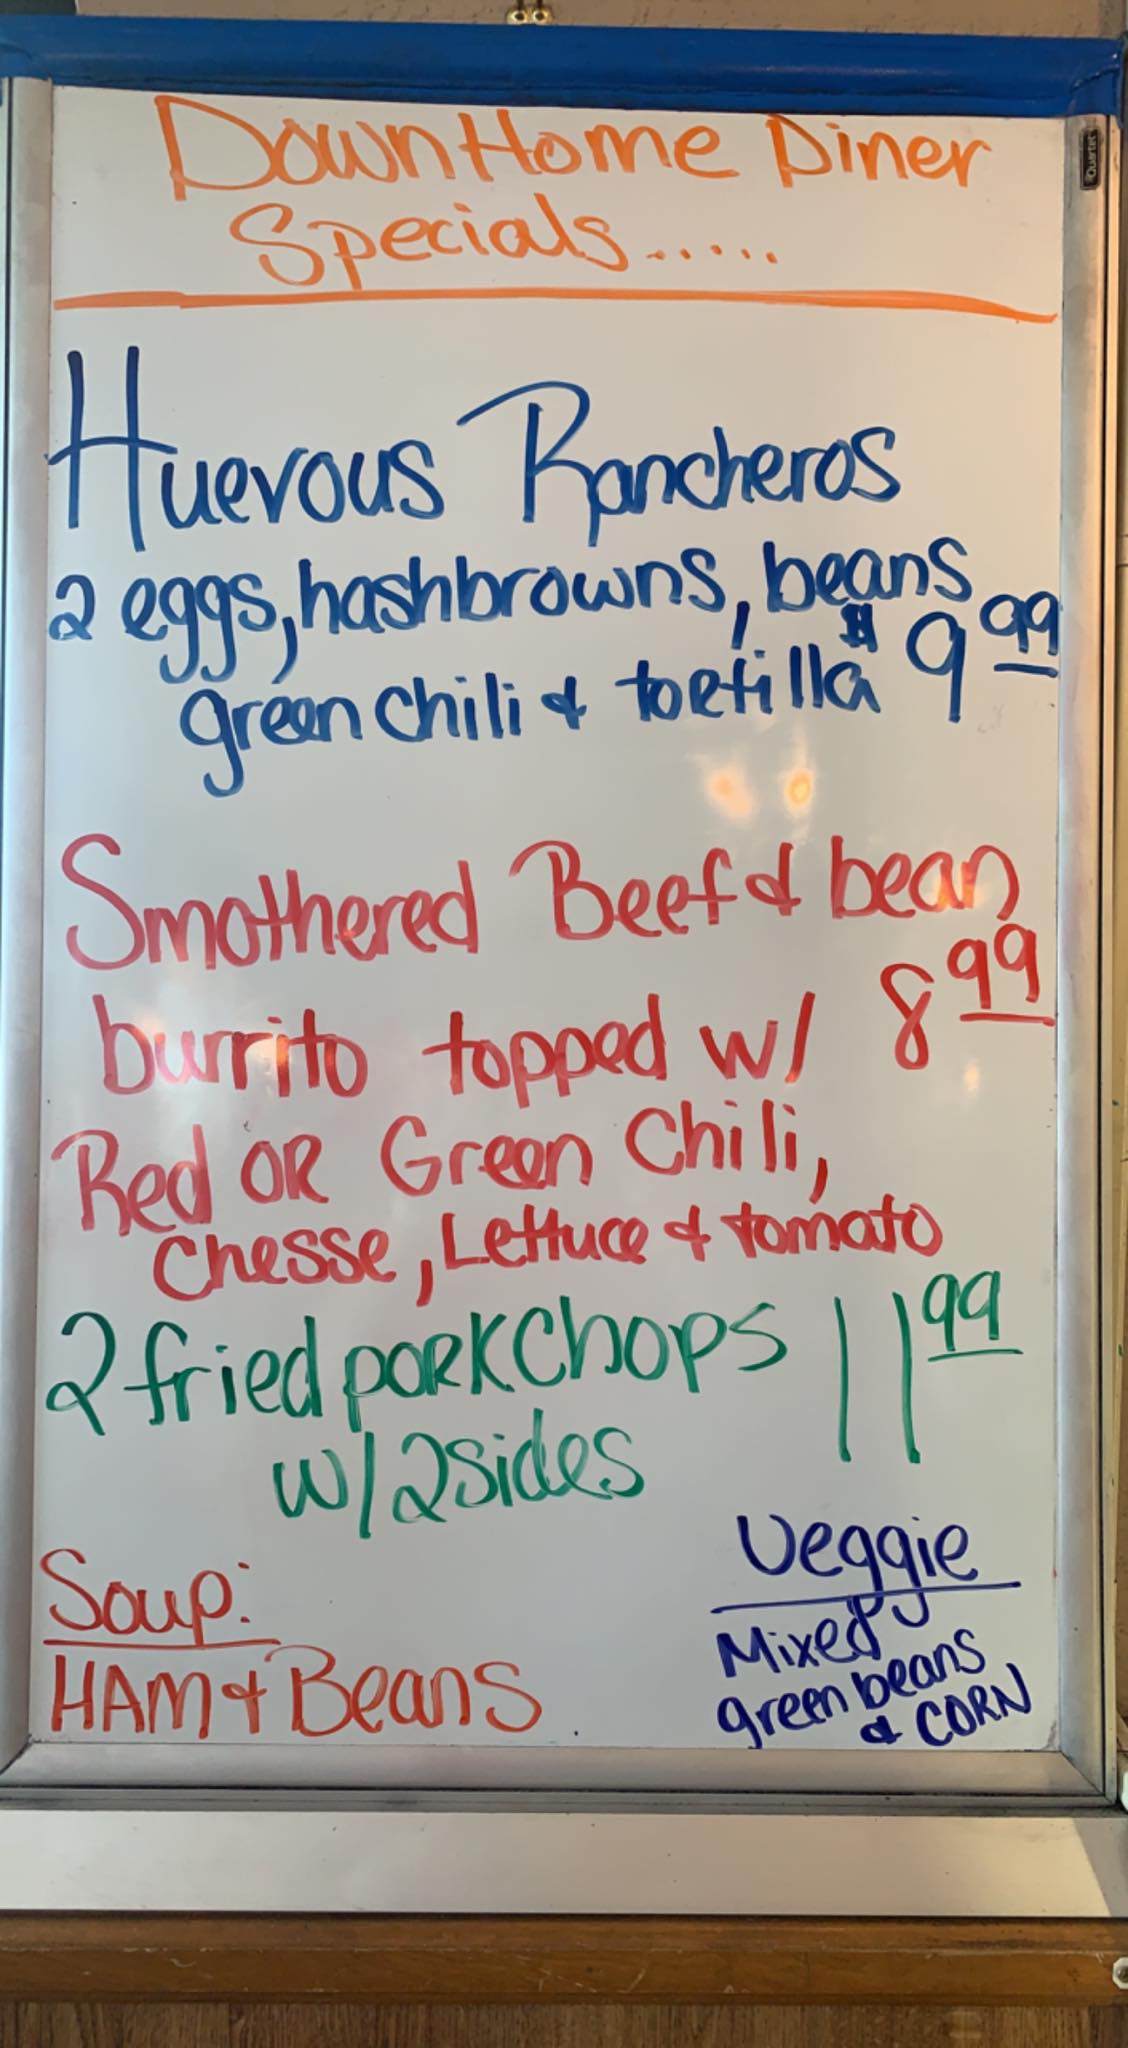 Down Home Diner
Specials.....
Quartet
Huevous Rancheros
2 eggs, hashbrowns, beans
green chili & tortilla $9.99
Smothered Beef & bean
burrito topped w/ 8.99
Red OR Green Chili,
Chesse, Lettuce & tomato
2 fried porkChops 11.99
w/ 2 sides
Soup:
HAM & Beans
Veggie
Mixed
green beans
& CORN